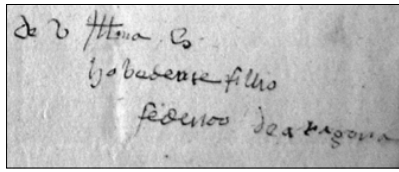 de v Ittma S
hobediente filho
federico de aragona